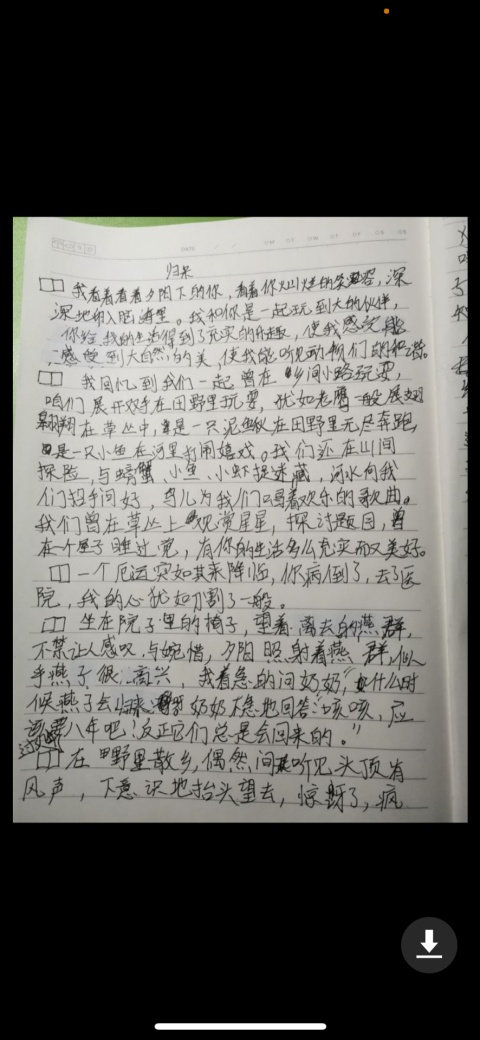 归来
我看着看着夕阳下的你，看着你灿烂的笑容，深
深地印入脑海里。我和你是一起玩到大的伙伴，
你给我的生活得到了充实的乐趣，使我感受能
感受到大自然的美，使我能听见动物们的和谐。
我回忆到我们一起曾在乡间小路玩耍，
咱们展开双手在田野里玩耍，犹如老鹰一般展翅
翱翔在草丛中，是一只泥鳅在田野里无尽奔跑，
是一只小鱼在河里打闹嬉戏。我们还在山间
探险，与螃蟹、小鱼、小虾捉迷藏，河水向我
们招手问好，鸟儿为我们唱着欢乐的歌曲。
我们曾在草丛上观赏星星，探讨题目，曾
在一个屋子睡过觉，有你的生活多么充实而又美好。
一个厄运突如其来降临，你病倒了，去了医
院，我的心犹如刀割了一般。
坐在院子里的椅子，望着离去的燕群，
不禁让人感叹与惋惜，夕阳照射着燕群，似
乎燕子很高兴，我着急的问奶奶，“什么时
候燕子会归来 奶奶不急地回答：“咳咳，应
该要八年吧！反正它们总是会回来的。”
在田野里散步，偶然间听见头顶有
风声，下意识地抬头望去，惊讶了，疯